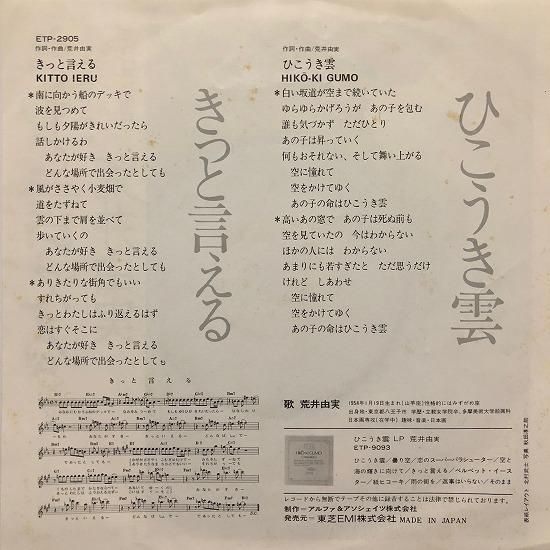 ETP-2905
作詞・作曲/荒井由実
きっと言える
KITTO IERU
*南に向かう船のデッキで
波を見つめて
もしも夕陽がきれいだったら
話しかけるわ
あなたが好き きっと言える
どんな場所で出会ったとしても
*風がささやく小麦畑で
道をたずねて
雲の下まで肩を並べて
歩いていくの
あなたが好き きっと言える
どんな場所で出会ったとしても
*ありきたりな街角でもいい
すれちがっても
きっとわたしはふり返えるはず
恋はすぐそこに
あなたが好き きっと言える
どんな場所で出会ったとしても
きっと言える
作詞・作曲/荒井由実
ひこうき雲
HIKŌ-KI GUMO
*白い坂道が空まで続いていた
ゆらゆらかげろうが あの子を包む
誰も気づかず ただひとり
あの子は昇っていく
何もおそれない、そして舞い上がる
空に憧れて
空をかけてゆく
あの子の命はひこうき雲
*高いあの窓で あの子は死ぬ前も
空を見ていたの 今はわからない
ほかの人には わからない
あまりにも若すぎたと ただ思うだけ
けれど しあわせ
空に憧れて
空をかけてゆく
あの子の命はひこうき雲
ひこうき雲
きっと言える
歌 荒井由実
1954年1月19日生まれ(山羊座)性格的にはみずがめ座
出身地・東京都八王子市 学歴・立教女学院卒、多摩美術大学絵画科
日本画専攻(在学中) 趣味・音楽・日本画
HIKŌ-KI GUMO
ひこうき雲 LP 荒井由実
ETP-9093
ひこうき雲/曇り空/恋のスーパーパラシューター/空と
海の輝きに向けて/きっと言える/ベルベット・イース
ター/紙ヒコーキ/雨の街を/返事はいらない/そのまま
レコードから無断でテープその他に録音することは法律で禁じられております。
制作=アルファ&アソシェイツ株式会社
発売元=東芝EMI株式会社 MADE IN JAPAN